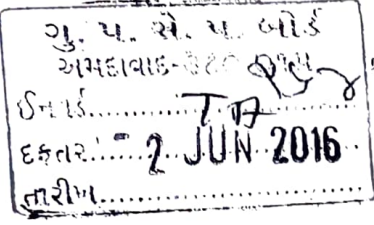 ગુ. પ. સે. પ. બોર્ડ
અમદાવાદ-
ઈનવર્ડ...........
દફતર......- 2 JUN 2016
તારીખ...................